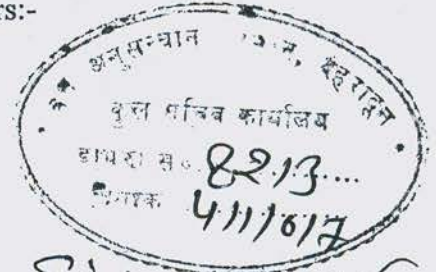 rs:-
वन अनुसन्धान संस्थान, देहरादून
कुल सचिव कार्यालय
डायरी सं० 8213
दिनांक 4/11/67